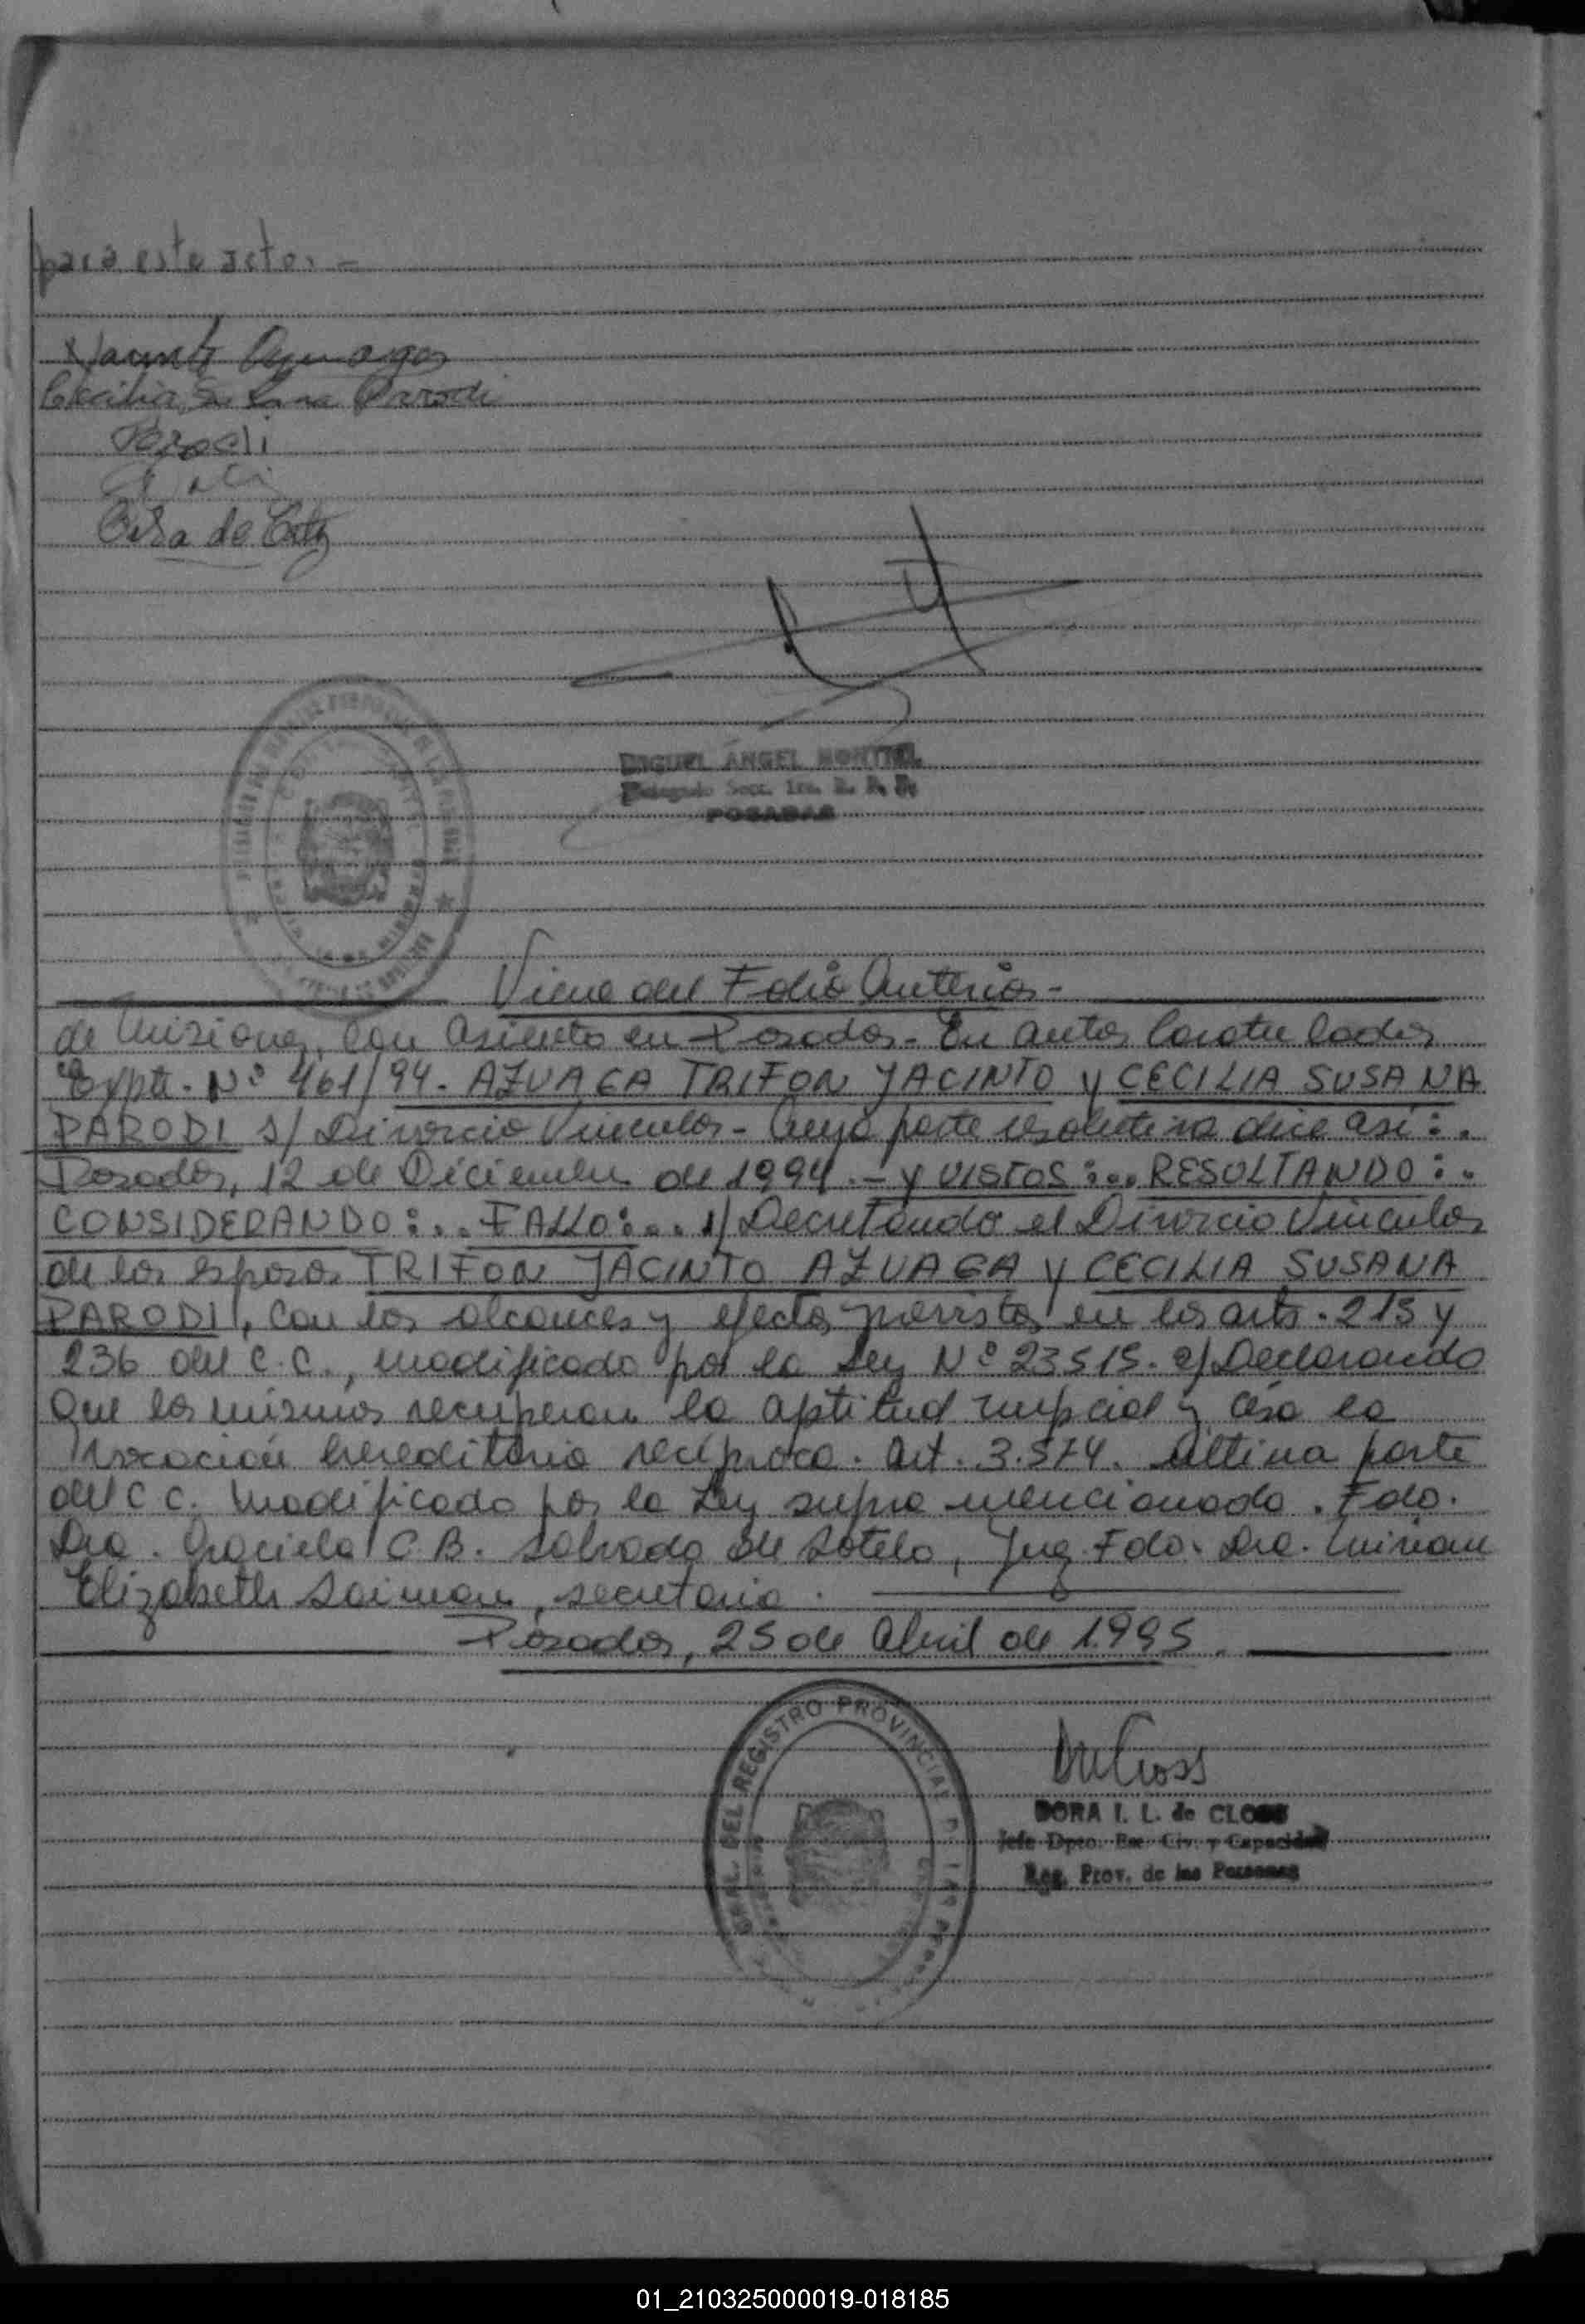 para este acto. -
Jacinto Azuaga
Cecilia Susana Parodi
Parodi
de
MIGUEL ÁNGEL MONTIEL
Delegado Secc. 1ra. R. P. P.
POSADAS
Viene del Folio Anterior -
de Misiones, con asiento en Posadas - En autos Caratulados
"Expte. Nº 461/94 - AZUAGA TRIFON JACINTO y CECILIA SUSANA
PARODI s/ Divorcio Vincular - Cuya parte resolutiva dice así: .
Posadas, 12 de Diciembre de 1994. - y VISTOS:... RESULTANDO: ..
CONSIDERANDO: ... FALLO: ... 1) Decretando el Divorcio Vincular
de los esposos TRIFON JACINTO AZUAGA y CECILIA SUSANA
PARODI, con los alcances y efectos previstos en los arts. 215 y
236 del C.C., modificado por la Ley Nº 23515. 2) Declarando
que los mismos recuperan la aptitud nupcial y cesa la
vocación hereditaria recíproca. Art. 3.574. última parte
del C C. modificado por la Ley supra mencionada. Fdo.
Dra. Graciela C.B. Salvado de Sotelo, Juez Fdo. Dra. Miriam
Elizabeth Saiman, secretaria.
Posadas, 25 de Abril de 1.995.
GRAL. DEL REGISTRO PROVINCIAL DE LAS PERS
DORA I. L. de CLOSS
Jefe Dpto. Est. Civ. y Capacidad
Reg. Prov. de las Personas
01_210325000019-018185